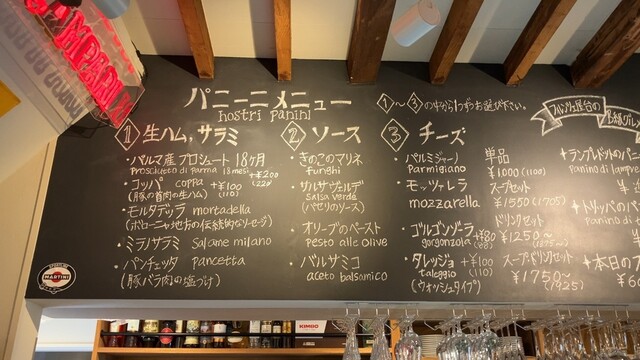 CAMPARI
パニーニメニュー
nostri panini
①〜③の中から1つずつお選び下さい。
① 生ハム、サラミ
・パルマ産プロシュート 18ヶ月
Prosciutto di Parma 18mesi
+¥200
(220)
・コッパ coppa +¥100
(豚の首肉の生ハム) (110)
・モルタデッラ mortadella
(ボローニャ地方の伝統的なソーセージ)
・ミラノサラミ Salame milano
・パンチェッタ pancetta
(豚バラ肉の塩づけ)
② ソース
・きのこのマリネ
funghi
・サルサヴェルデ
salsa verde
(パセリのソース)
・オリーブのペースト
pesto alle Olive
・バルサミコ
aceto balsamico
③ チーズ
・パルミジャーノ
Parmigiano
・モッツァレラ
mozzarella
・ゴルゴンゾーラ +¥80
gorgonzola (88)
・タレッジョ +¥100
taleggio (110)
(ウォッシュタイプ)
単品
¥1000 (1100)
スープセット
¥1550 (1705)
ドリンクセット
¥1250〜
スープ・ドリンクセット
¥1750〜
(1925)
フィレンツェ屋台の
+ランプレドットのパニー
Panino di lampre
+トリッパのパ
Panino di
+本日の
¥6
MARTINI
KIMBO